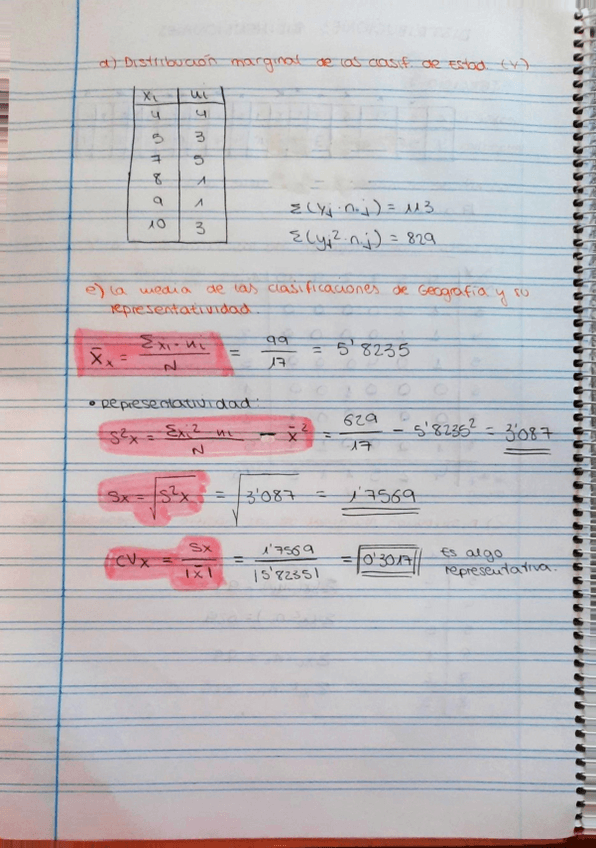 d) Distribución marginal de las clasif. de Estad. (Y)
xi ni
4 4
5 3
7 5
8 1
9 1
10 3
Σ(yj · n.j) = 113
Σ(yj² · n.j) = 829
e) La media de las clasificaciones de Geografía y su
representatividad.
x̄x = Σxi · ni / N = 99 / 17 = 5'8235
• Representatividad:
S²x = Σxi² · ni / N − x̄² = 629 / 17 − 5'8235² = 3'087
Sx = √S²x = √3'087 = 1'7569
CVx = Sx / |x̄| = 1'7569 / |5'8235| = 0'3017 Es algo
representativa.